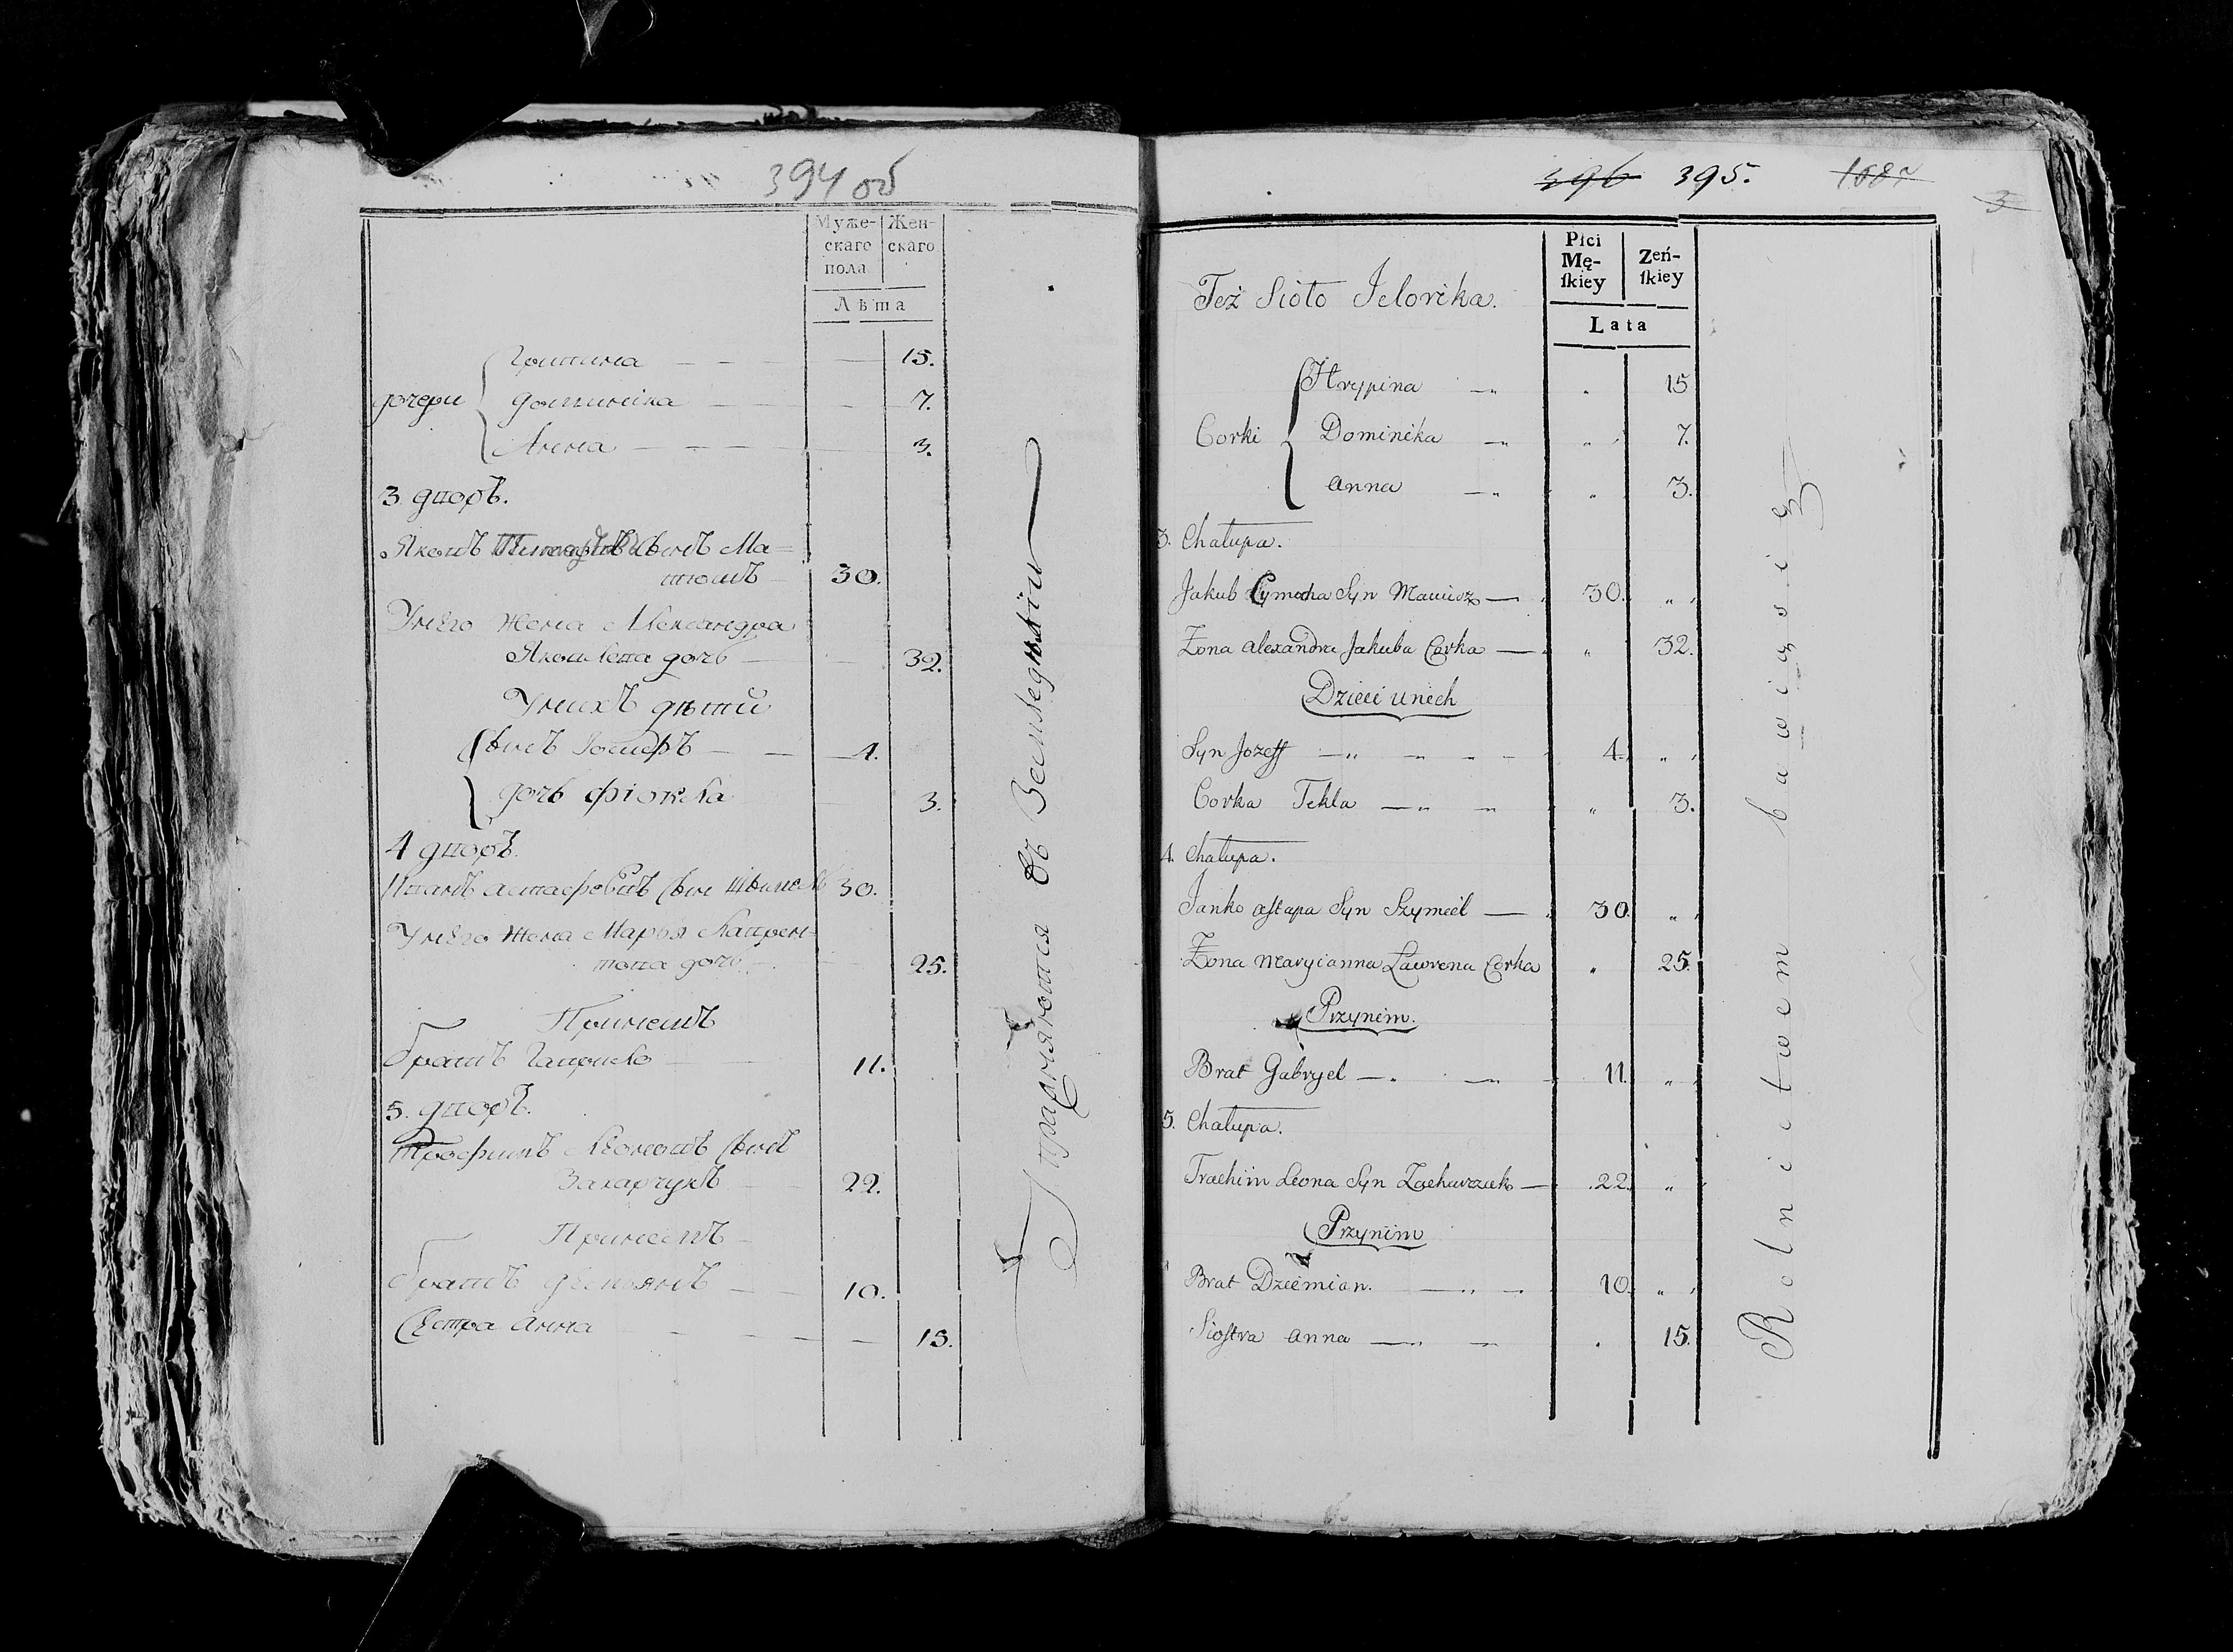 394 об
Муже-
скаго
пола
Жен-
скаго
Лѣта
дочери
Грипина 15.
Доминика 7.
Анна 3.
3 дворъ.
Яковъ сынъ Ма-
30.
У него жена Александра
Яковлева дочь 32.
У нихъ дѣти
сынъ Іосифъ 4.
дочь Фіокла 3.
4 дворъ.
Иванъ Астафовъ сынъ 30.
У него жена Марья Лаврен-
това дочь 25.
При немъ
братъ Гаврило 11.
5. дворъ.
Трофимъ Леоновъ сынъ
Захарчукъ 22.
При немъ
братъ Демьянъ 10.
Сестра Анна 15.
Упражняются въ Земледѣліи
396 395. 1687
3
Też Sioło Jelowka.
Płci
Mę-
ſkiey
Zeń-
ſkiey
Lata
Corki
Hrypina 15
Dominika 7.
Anna 3.
3. Chałupa.
Jakub Cymocha Syn 30.
Żona Alexandra Jakuba Corka 32.
Dzieci unich
Syn Jozeff 4.
Corka Tekla 3.
4. Chałupa.
Janko Aſtapa Syn Szymeel 30.
Żona Maryianna Lawrena Corka 25.
Przynim.
Brat Gabryel 11.
5. Chałupa.
Trochim Leona Syn Zacharczuk 22.
Przynim
Brat Dziemian. 10.
Sioſtra Anna 15.
Rolnictwem bawią się